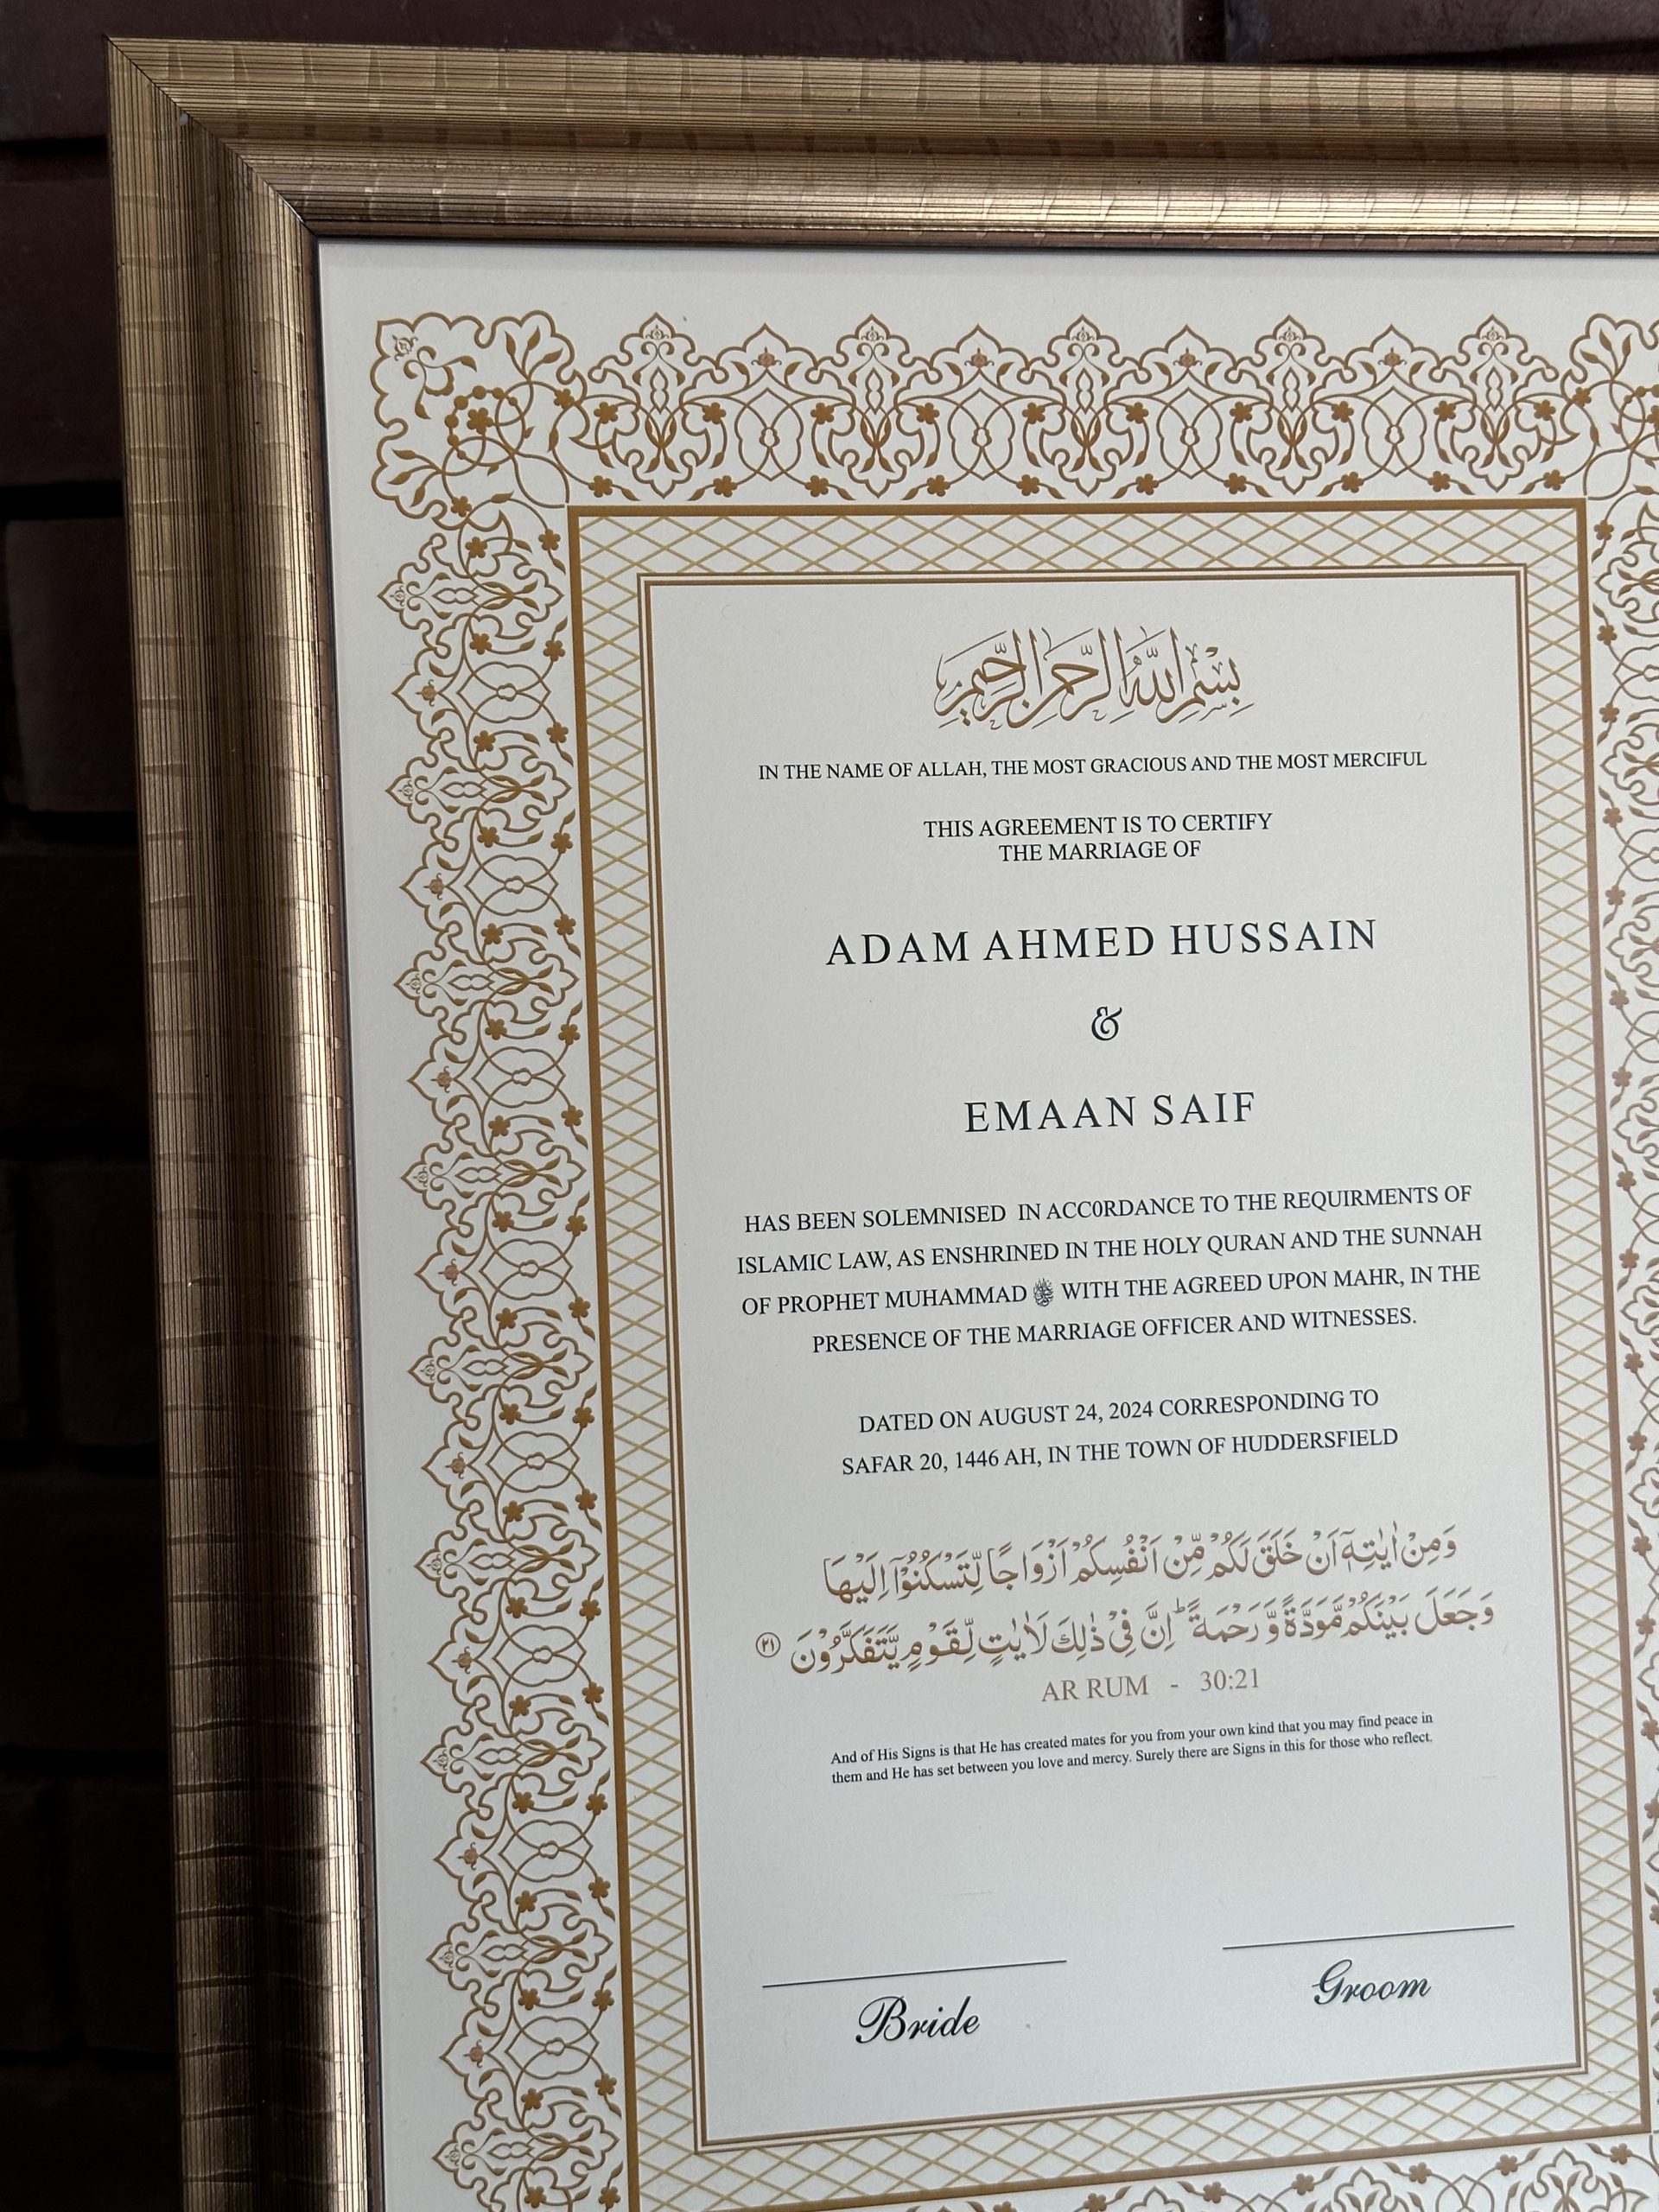 بِسْمِ اللهِ الرَّحْمٰنِ الرَّحِيْمِ
IN THE NAME OF ALLAH, THE MOST GRACIOUS AND THE MOST MERCIFUL
THIS AGREEMENT IS TO CERTIFY
THE MARRIAGE OF
ADAM AHMED HUSSAIN
&
EMAAN SAIF
HAS BEEN SOLEMNISED IN ACC0RDANCE TO THE REQUIRMENTS OF
ISLAMIC LAW, AS ENSHRINED IN THE HOLY QURAN AND THE SUNNAH
OF PROPHET MUHAMMAD ﷺ WITH THE AGREED UPON MAHR, IN THE
PRESENCE OF THE MARRIAGE OFFICER AND WITNESSES.
DATED ON AUGUST 24, 2024 CORRESPONDING TO
SAFAR 20, 1446 AH, IN THE TOWN OF HUDDERSFIELD
وَمِنْ اٰيٰتِهٖٓ اَنْ خَلَقَ لَكُمْ مِّنْ اَنْفُسِكُمْ اَزْوَاجًا لِّتَسْكُنُوْٓا اِلَيْهَا
وَجَعَلَ بَيْنَكُمْ مَّوَدَّةً وَّرَحْمَةً ؕ اِنَّ فِيْ ذٰلِكَ لَاٰيٰتٍ لِّقَوْمٍ يَّتَفَكَّرُوْنَ ٢١
AR RUM - 30:21
And of His Signs is that He has created mates for you from your own kind that you may find peace in
them and He has set between you love and mercy. Surely there are Signs in this for those who reflect.
Bride Groom